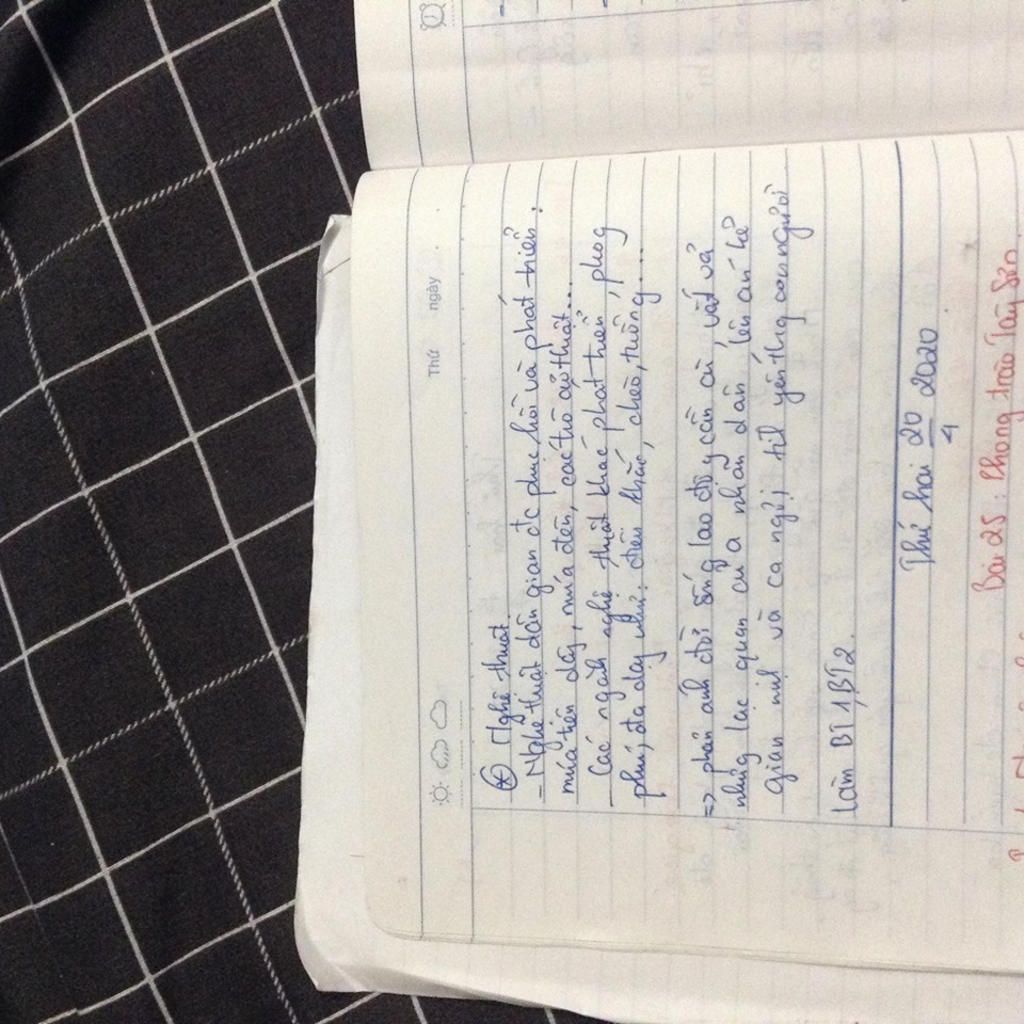 Thứ ngày
Nghệ thuật
- Nghệ thuật dân gian đc phục hồi và phát triển.
múa trên dây, múa đèn, các trò ảo thuật...
- Các ngành nghệ thuật khác phát triển, phog
phú, đa dạng như: điêu khắc, chèo, tuồng....
=> phản ánh đời sống lao độg cần cù, vất vả
nhưg lạc quan của nhân dân lên án kẻ
gian nịnh và ca ngợi tìh yêu thg con người
Làm BT1, BT2.
Thứ hai 20/4 2020
Bài 25: Phong trào Tây Sơn